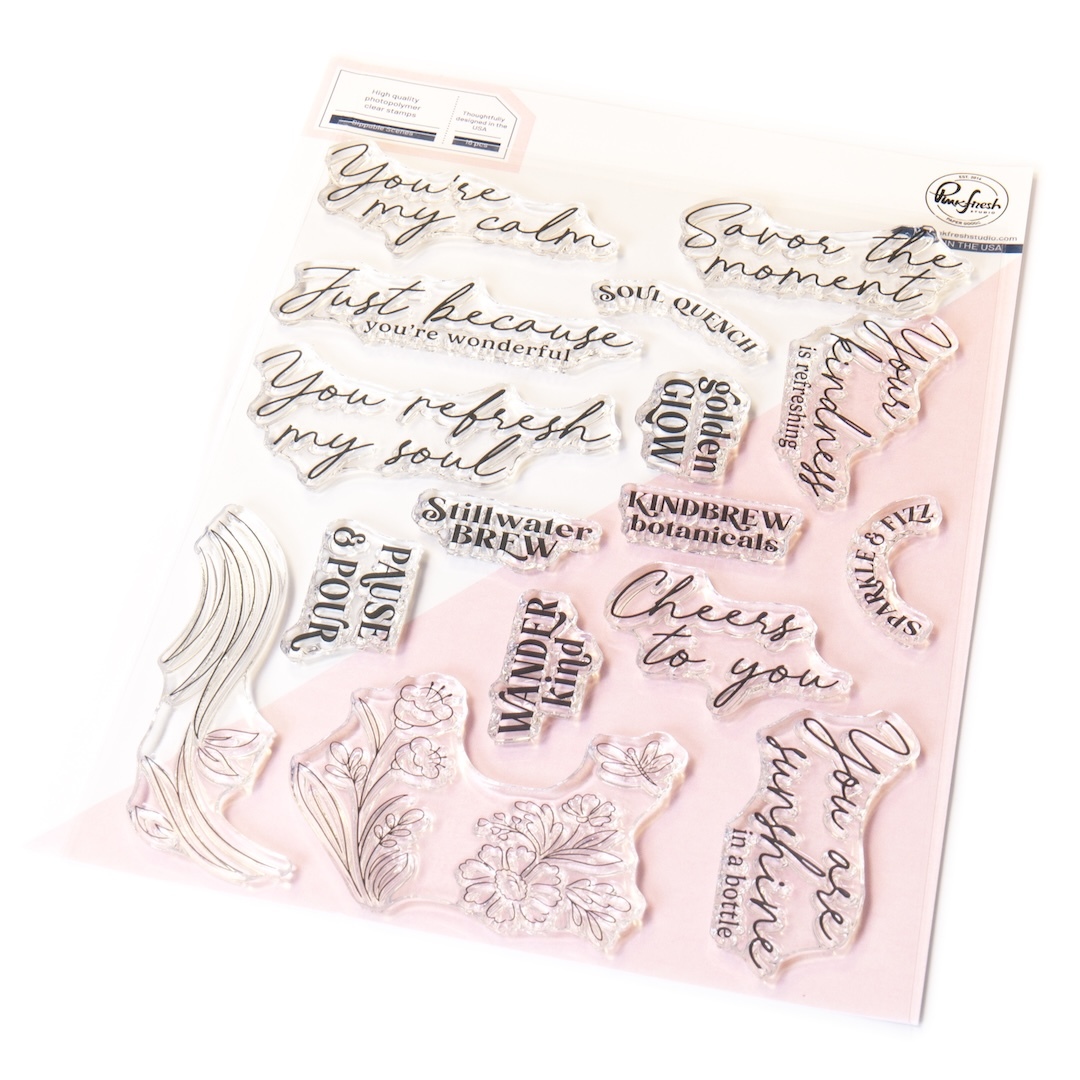 High quality
photopolymer
clear stamps
Thoughtfully
designed in the
USA
16 pcs
EST. 2014
Pinkfresh
STUDIO
IN THE USA
You're
my calm
Savor the
moment
Just because
you're wonderful
SOUL QUENCH
Your
kindness
is refreshing
You refresh
my soul
golden
GLOW
Stillwater
BREW
KINDBREW
botanicals
SPARKLE & FIZZ
PAUSE
& POUR
WANDER
kind
Cheers
to you
You are
sunshine
in a bottle